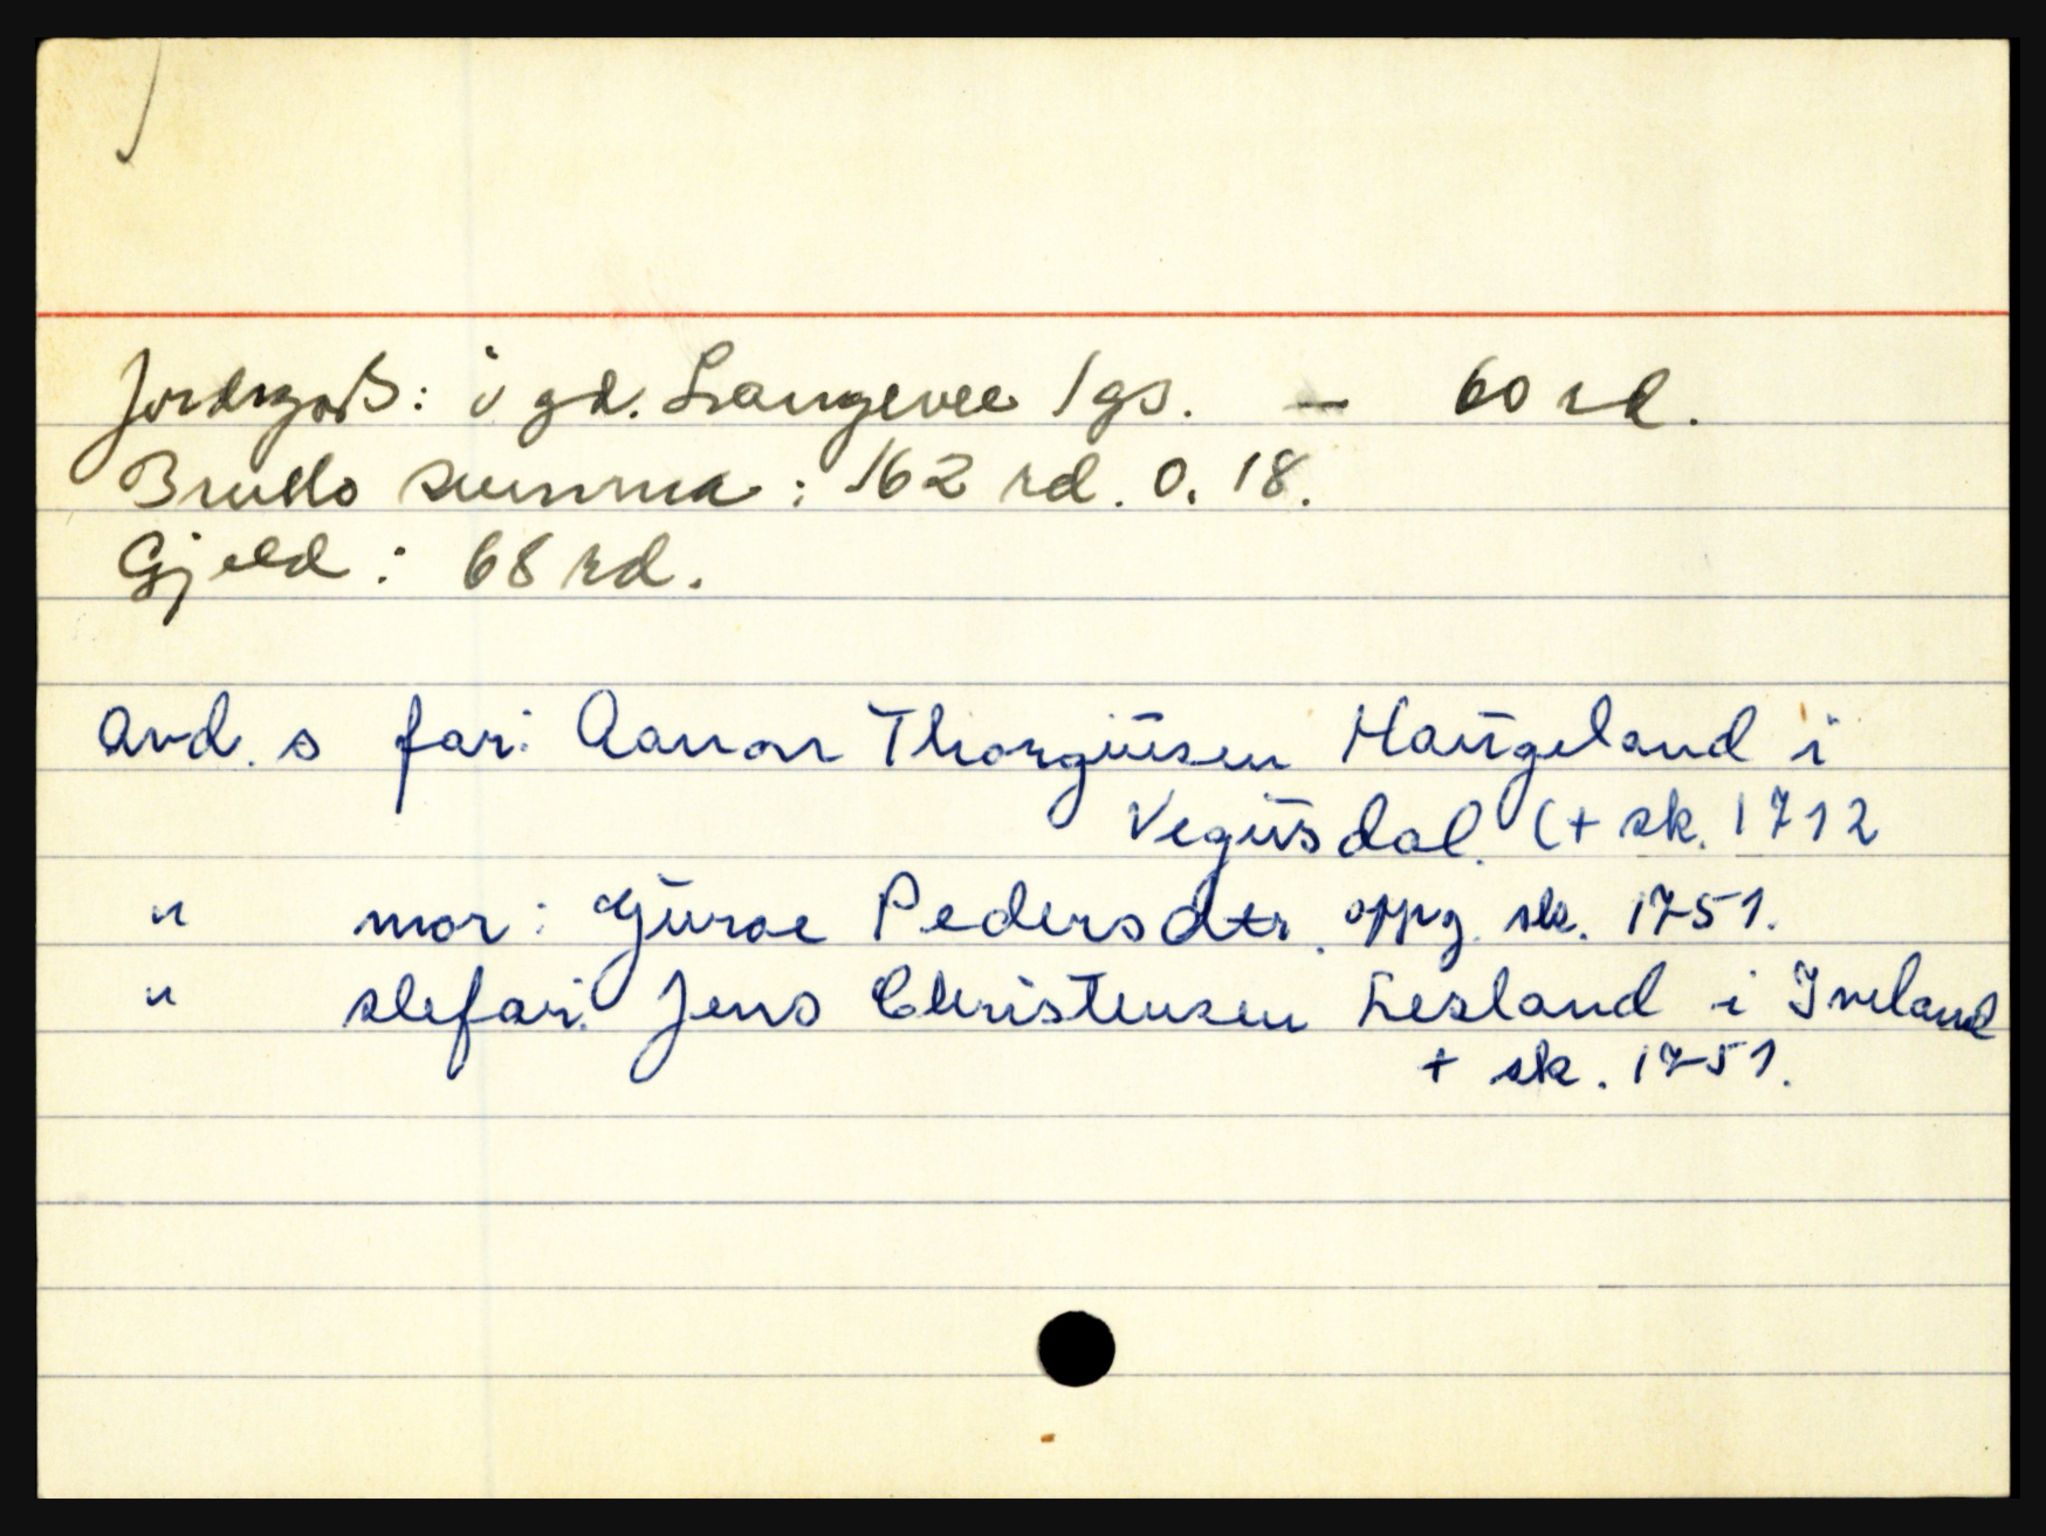 Jordegods: i gd. Langevee 1 gs. — 60 rd.
Brutto summa: 162 rd. 0. 18.
Gjeld: 68 rd.
Avd. s far: Aanon Thorgiüsen Haŭgeland i
Vegŭsdal. (+ sk. 1712
" mor: Gŭroe Pedersdtr. oppg. sk. 1751.
" stefar: Jens Christensen Lesland i Iveland
+ sk. 1751.